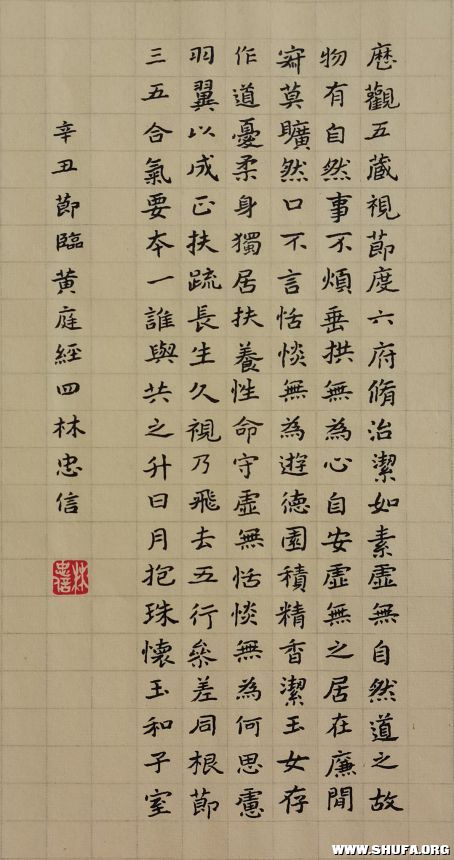 歷觀五藏視節度六府脩治潔如素虛無自然道之故
物有自然事不煩垂拱無為心自安虛無之居在廉間
寂莫曠然口不言恬惔無為遊德園積精香潔玉女存
作道憂柔身獨居扶養性命守虛無恬惔無為何思慮
羽翼以成正扶疏長生久視乃飛去五行參差同根節
三五合氣要本一誰與共之升日月抱珠懷玉和子室
辛丑節臨黃庭經四林忠信
林忠信
WWW.SHUFA.ORG